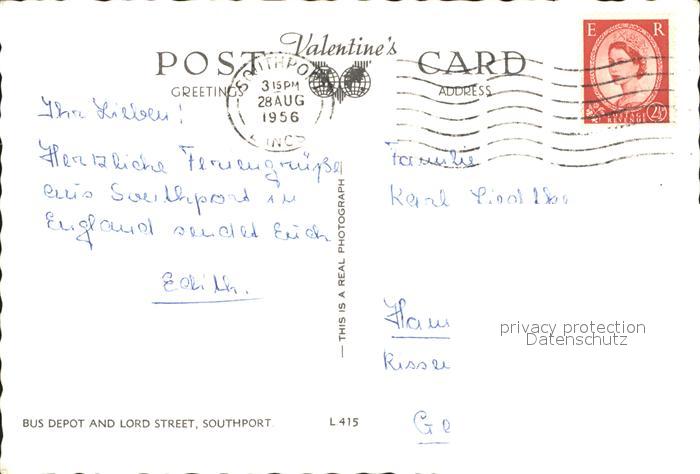 Valentine's
POST CARD
GREETINGS ADDRESS
SOUTHPORT
3 15 PM
28 AUG
1956
LANCS
E R
POSTAGE REVENUE
2½D
Ihr Lieben!
Herzliche Feriengrüße
aus Southport in
England sendet Euch
Edith.
THIS IS A REAL PHOTOGRAPH
Familie
Karl
Ham
Risse
Ge
privacy protection
Datenschutz
BUS DEPOT AND LORD STREET, SOUTHPORT. L 415